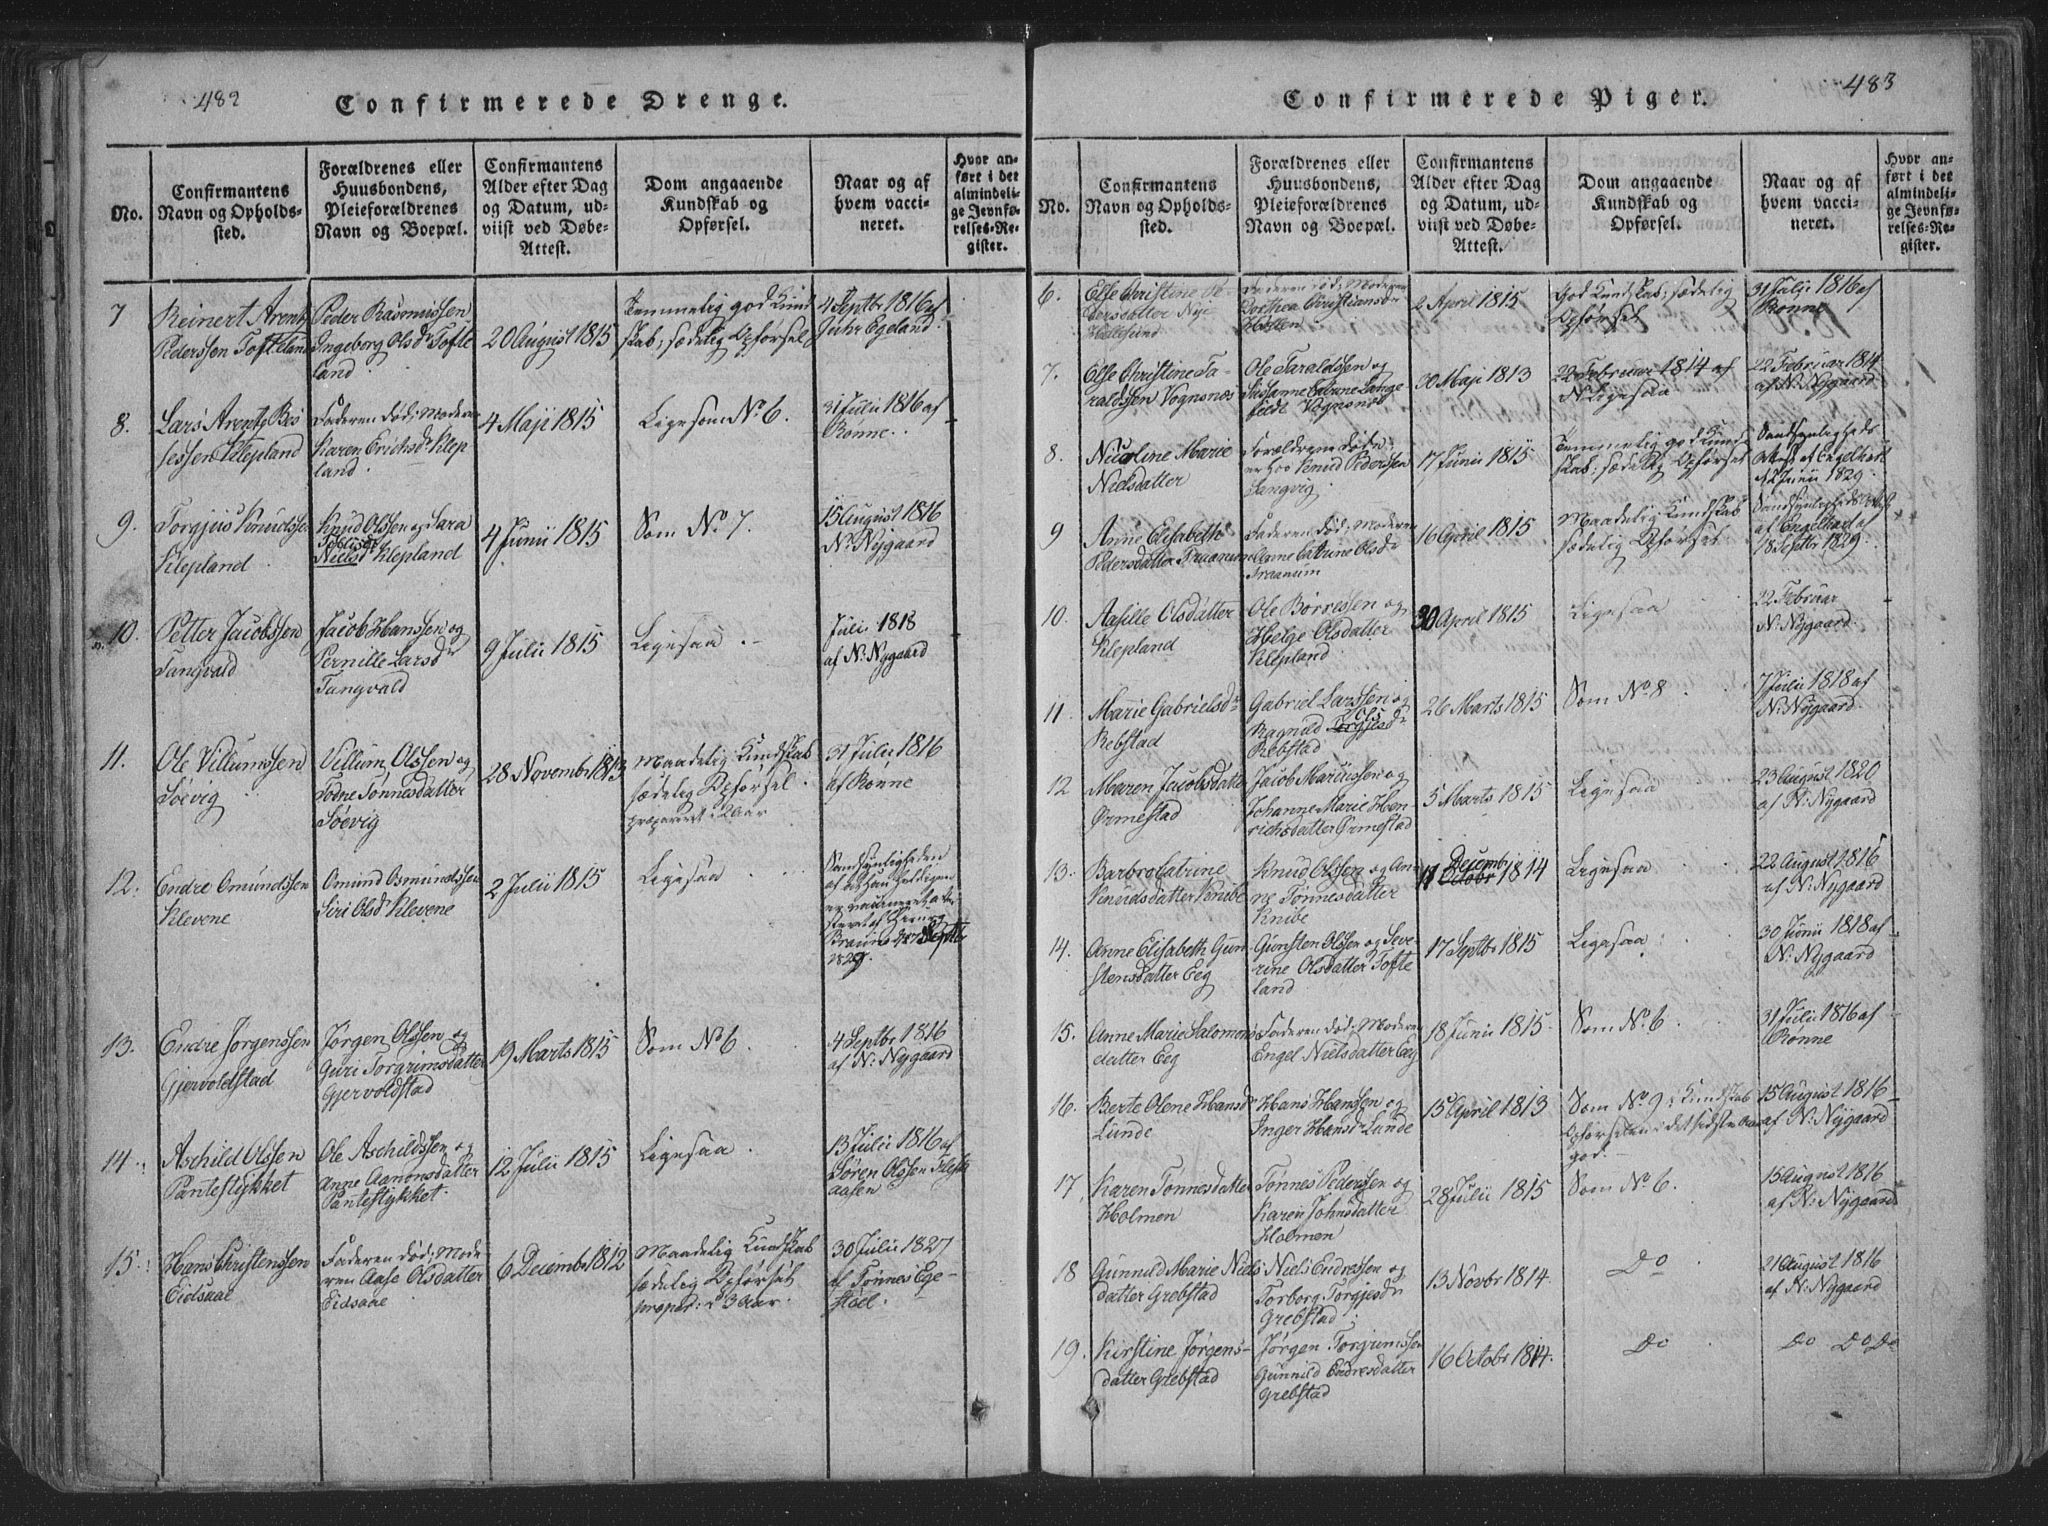 482
Confirmerede Drenge.
No.
Confirmantens
Navn og Opholds-
sted.
Forældrenes eller
Huusbondens,
Pleieforældrenes
Navn og Boepæl.
Confirmantens
Alder efter Dag
og Datum, ud-
viist ved Døbe-
Attest.
Dom angaaende
Kundskab og
Opførsel.
Naar og af
hvem vacci-
neret.
Hvor an-
ført i det
almindeli-
ge Jevnfø-
relses-Re-
gister.
7
Reinert Arent
Pederssen Tofteland
Peder Rasmussen
Ingeborg Olsdr Tofte
land
20 August 1815
Temmelig god Kund
skab; sædelig Opførsel
4 Septbr 1816 af
Guhr Egeland
8.
Lars Arent Bes
sessen Klepland
Faderen død; Moder
Karen Erichsdr Klep
land.
4 Maji 1815
Ligesom No 6.
31 Julii 1816 af
Rønne.
9.
Torgjus Knudssen
Klepland
Knud Olssen og Sara
Nielsdr Klepland
4 Junii 1815
Som No 7.
15 August 1816
N. Nygaard
10.
Petter Jacobssen
Tangvald
Jacob Hanssen og
Pernille Larsdr
Tangvald
9 Julii 1815
Ligesaa
Juli 1818
af N. Nygaard
11.
Ole Villumssen
Søevig
Villum Olssen og
Todne Tønnesdatter
Søevig
28 Novembr 1813
Maadelig Kundskab
sædelig Opførsel.
præpareret 2 Aar
31 Julii 1816
af Rønne
12.
Endre Omundssen
Klevene
Omund Osmundssen
Siri Olsd Klevene
2 Julii 1815
Ligesaa
Sandsynligheden
af at han heldigen
er vaccineret atte
steret af Chirurg
Septbr
1829.
13.
Endre Jørgenssen
Gjervoldstad
Jørgen Olssen og
Guri Torgrimsdatter
Gjervoldstad
19 Marts 1815
Som No 6
4 Septbr 1816
af N. Nygaard
14.
Aschild Olssen
Pantestykket
Ole Aschildssen og
Anne Aanonsdatter
Pantestykket.
12 Julii 1815
Ligesaa
13 Julii 1816 af
Søren Olssen Flest
aasen
15.
Hans Christenssen
Eidsaae
Faderen død; Mode
ren Aase Olsdatter
Eidsaae
6 Decembr 1812
Maadelig Kundskab
sædelig Opførsel
præpar: i 3 Aar.
30 Julii 1827
af Tønnes Ege-
støel.
483
Confirmerede Piger.
No.
Confirmantens
Navn og Opholds-
sted.
Forældrenes eller
Huusbondens,
Pleieforældrenes
Navn og Boepæl.
Confirmantens
Alder efter Dag
og Datum, ud-
viist ved Døbe-
Attest.
Dom angaaende
Kundskab og
Opførsel.
Naar og af
hvem vacci-
neret.
Hvor an-
ført i det
almindeli-
ge Jevnfø-
relses-Re-
gister.
6.
Else Christine Pe
dersdatter Nye
Hellesund
Faderen død; Moderen
Dorthea Christiansdr
Holten
2 April 1815
God Kundskab; sædelig
Opførsel
31 Julii 1816 af
Rønne
7.
Else Christine Ta
raldssen Vognsnes
Ole Taraldssen og
Susanne Catrine Lange
feldt Vognsnes
30 Maji 1813
22 Februar 1814 af
N. Ligesaa
22 Februar 1814
af N. Nygaard
8.
Nicoline Marie
Nielsdatter
Forældrene døde;
er hos Knud Pederssen
Langvig
17 Junii 1815
Temmelig god Kund
skab; sædelig Opførsel
Sandsynligheds
Attest af Engelhart
af 2 Junii 1829.
9
Anne Elisabeth
Pedersdatter Traanum
Faderen død; Moderen
Anne Catrine Olsdr
Traanum
16 April 1815
Maadelig Kundskab
sædelig Opførsel
Sandsynligheds Attest
af Engelhart af
18 Septbr 1829.
10.
Aasille Olsdatter
Klepland
Ole Børressen og
Helge Olsdatter
Klepland
30 April 1815
Ligesaa
22 Februar
N. Nygaard
11.
Marie Gabrielsdr
Rebstad
Gabriel Larssen og
Ols
Ragnild Torgjusdr
Rebstad
26 Marts 1815
Som No 8
7 Julii 1818 af
N. Nygaard
12
Maren Jacobsdatter
Ormestad
Jacob Marcussen og
Johanne Marie Hen
richsdatter Ormestad
5 Marts 1815
Ligesaa
23 August 1820
af N. Nygaard
13.
Barbro Catrine
Knudsdatter Knibe
Knud Olssen og An
ne Tønnesdatter
Knibe
Decemb
11 Octobr 1814
Ligesaa
22 August 1816
af N. Nygaard
14.
Anne Elisabeth Gun
stensdatter Eeg
Gunsten Olssen og Seve
rine Olsdatter Tofte
land
17 Septbr 1815
Ligesaa
30 Junii 1818 af
N. Nygaard
15.
Anne Marie Salomons
datter Eeg
Faderen død; Moderen
Engel Nielsdatter Eeg
18 Junii 1815
Som No. 6.
31 Julii 1816 af
Rønne
16.
Berte Olene Hansdr
Lunde
Hans Hanssen og
Inger Hansdr Lunde
15 April 1813
Som No 9; Kundskab
Opførselen i det sidste Aar
god.
15 August 1816
af N. Nygaard
17
Karen Tønnesdatter
Holmen
Tønnes Pederssen og
Karen Johnsdatter
Holmen
28 Julii 1815
Som No. 6.
15 August 1816
af N. Nygaard
18
Gunnild Marie Niels
datter Grebstad
Niels Endresen og
Torborg Torgjusdr
Grebstad
13 Novbr 1814.
Do
21 August 1816
af N. Nygaard
19.
Kirstine Jørgens-
datter Grebstad
Jørgen Torgrimssen
Gunnild Endresdatter
Grebstad
16 Octobr 1814.
Do
Do Do Do